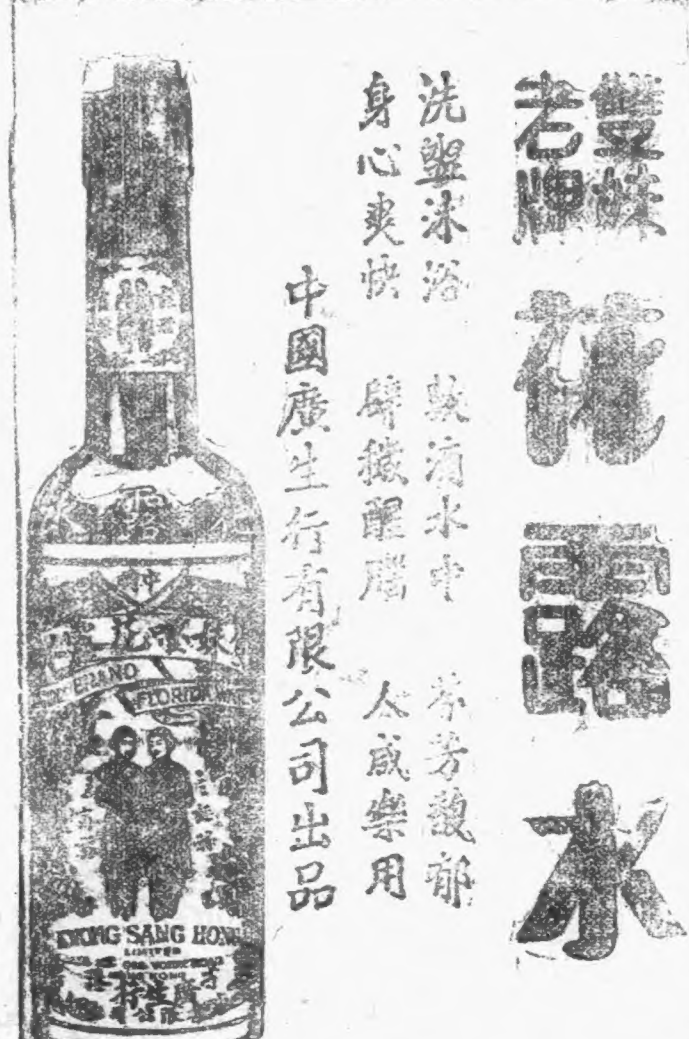 雙妹
老牌
花露水
洗盥沐浴 數滴水中 芬芳馥郁
身心爽快 辟穢醒腦 人咸樂用
中國廣生行有限公司出品
BRAND
FLORIDA WATER
KWONG SANG HONG
LIMITED